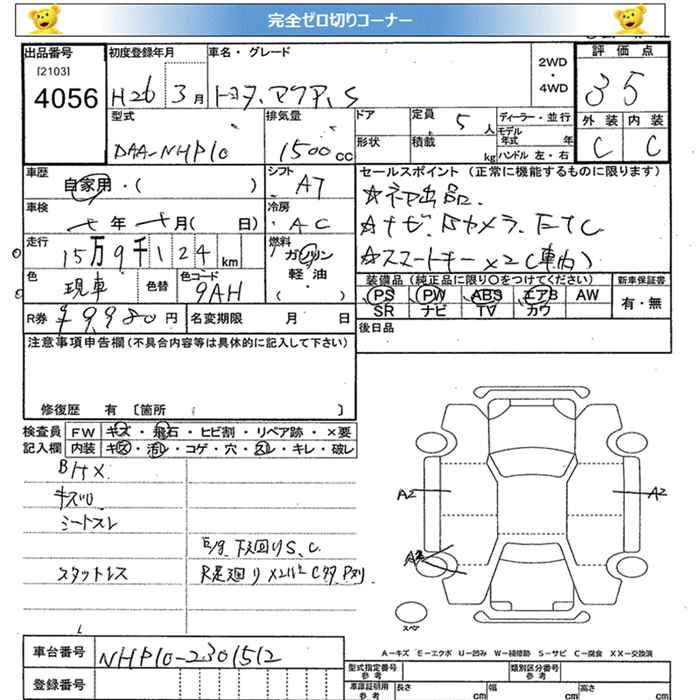 完全ゼロ切りコーナー
出品番号 初度登録年月 車名・グレード 2WD・4WD 評価点
[2103]
4056 H26 3月 トヨタ.アクア.S 35
型式 排気量 ドア 定員 5人 ディーラー・並行 外装 内装
DAA-NHP10 1500cc 形状 積載 kg モデル年式 年 ハンドル 左・右 C C
車歴 シフト セールスポイント (正常に機能するものに限ります)
自家用・( ) AT ☆初出品.
車検 冷房
年 月( 日) AC ☆ナビ.Bカメラ.ETC
走行 燃料
15万9千124km ガソリン ☆スマートキー×2(車内)
色 色替 色コード 軽油
現車 9AH ・( ) 装備品 (純正品に限り〇をつけてください) 新車保証書
PS PW ABS エアB AW 有・無
SR ナビ TV カワ
R券 ¥9,980円 名変期限 月 日 後日品
注意事項申告欄(不具合内容等は具体的に記入して下さい)
修復歴 有 〔箇所 〕
検査員 FW キズ・飛石・ヒビ割・リペア跡・×要
記入欄 内装 キズ・汚レ・コゲ・穴・スレ・キレ・破レ
キズ
シートスレ
下廻りS.C.
スタットレス
A2 A2
スペア
A-キズ E-エクボ U-凹み W-補修跡 S-サビ C-腐食 XX-交換済
車台番号 NHP10-2301512
登録番号
型式指定番号 参考 類別区分番号 参考
車庫証明用 参考 長さ cm 幅 cm 高さ cm